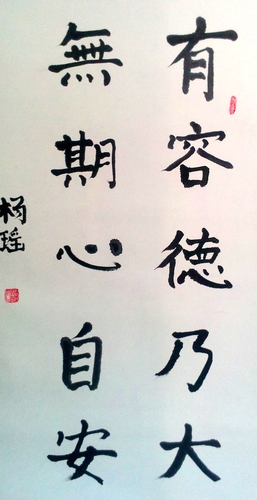 有容德乃大
無期心自安
杨瑶